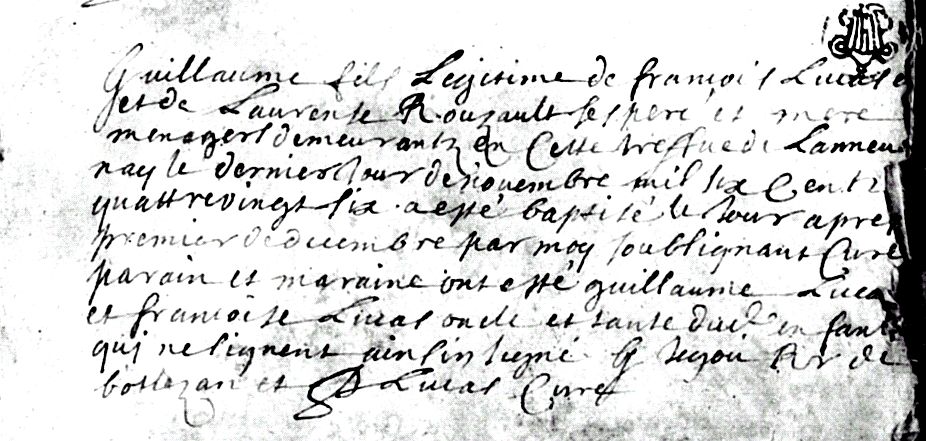 Guillaume fils Legitime de francois Lucas
et de Laurense Rouzault ses pere et mere
menagers demeurantz en Cette treffue de Lanneu
nay le dernier Jour de novembre mil six Centz
quattrevingt six a esté baptisé le Jour apres
premier de decembre par moy soubsignant Curé
parain et maraine ont esté guillaume Lucas
et francoise Lucas oncle et tante dud enfant
qui ne signent ainsin signé G
et Lucas Curé